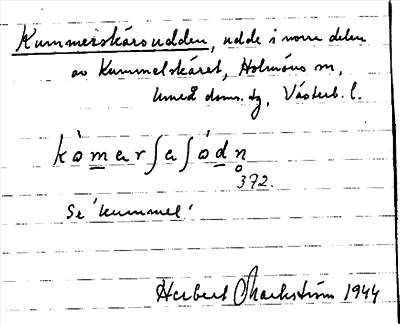 Kummerskärsudden, udde i norra delen
av Kummelskäret, Holmöns sn,
Umeå doms. tg, Västerb. l.
kòmarʃaʃódn̥
372.
Se 'kummel'
Herbert Markström 1944